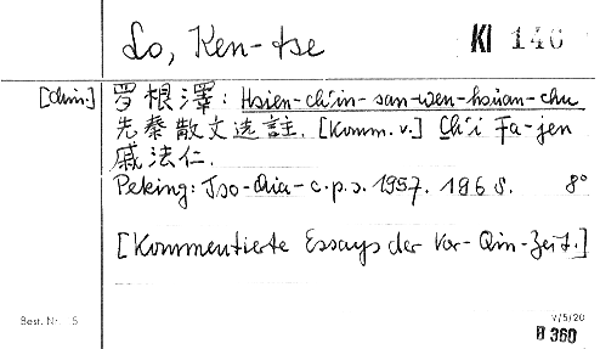 Lo, Ken-tse
KI 146
[chin.] 罗根澤: Hsien-ch'in-san-wen-hsüan-chu
先秦散文选註. [Komm. v.] Ch'i Fa-jen
戚法仁.
Peking: Tso-chia-c.p.s. 1957. 196 S. 8°
[Kommentierte Essays der Vor-Qin-Zeit.]
Best. Nr. 5
V/5/20
B 360